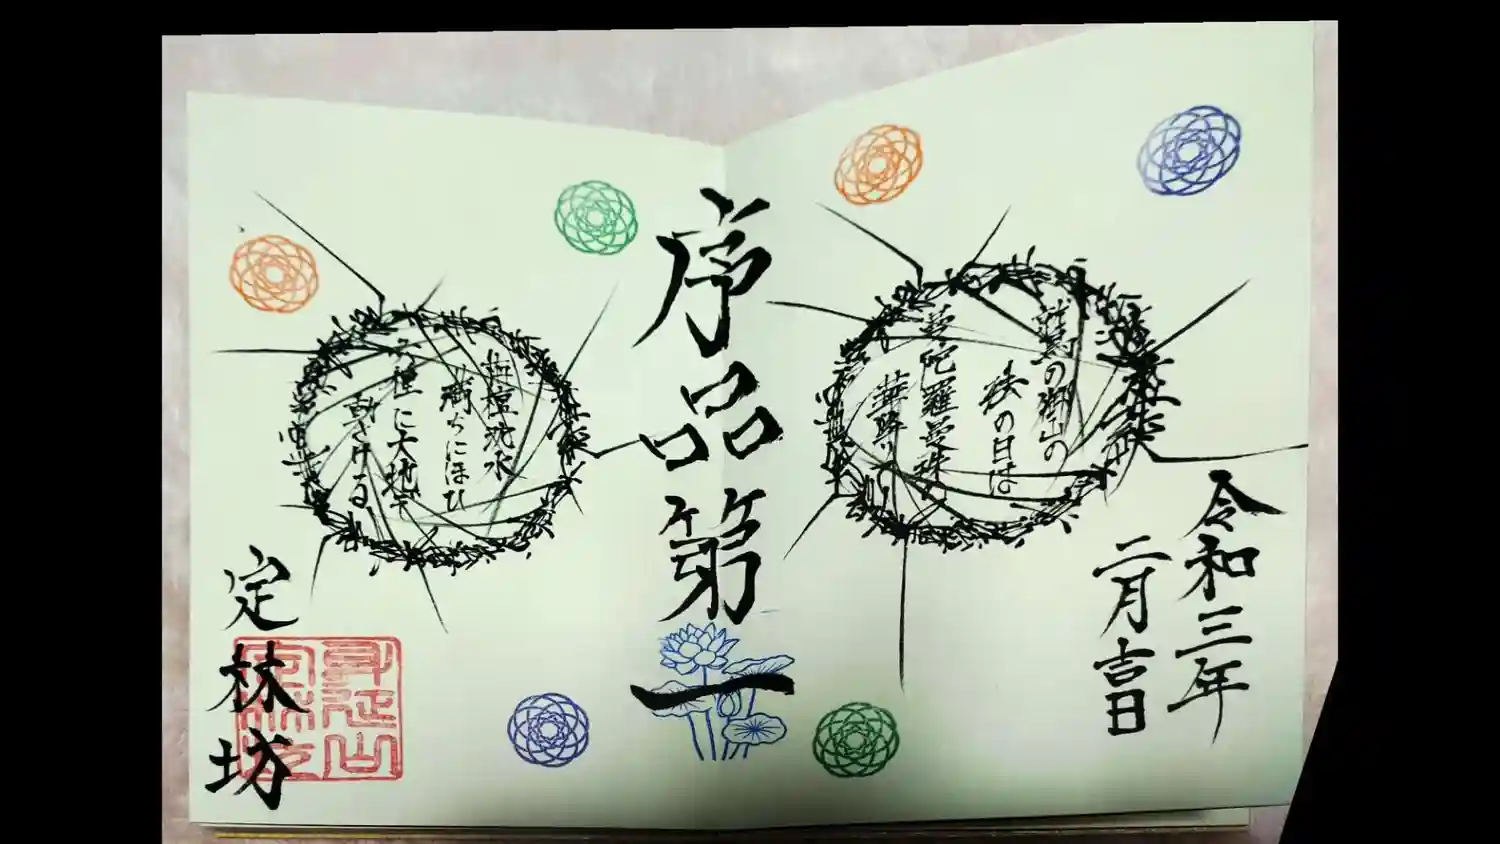 令和三年
二月吉日
鷲の御山の
法の日は
曼陀羅曼珠
華降り
序品第一
栴檀沈水
満ちにほひ
六種に大地ぞ
動きける
定林坊
身延山
定林坊